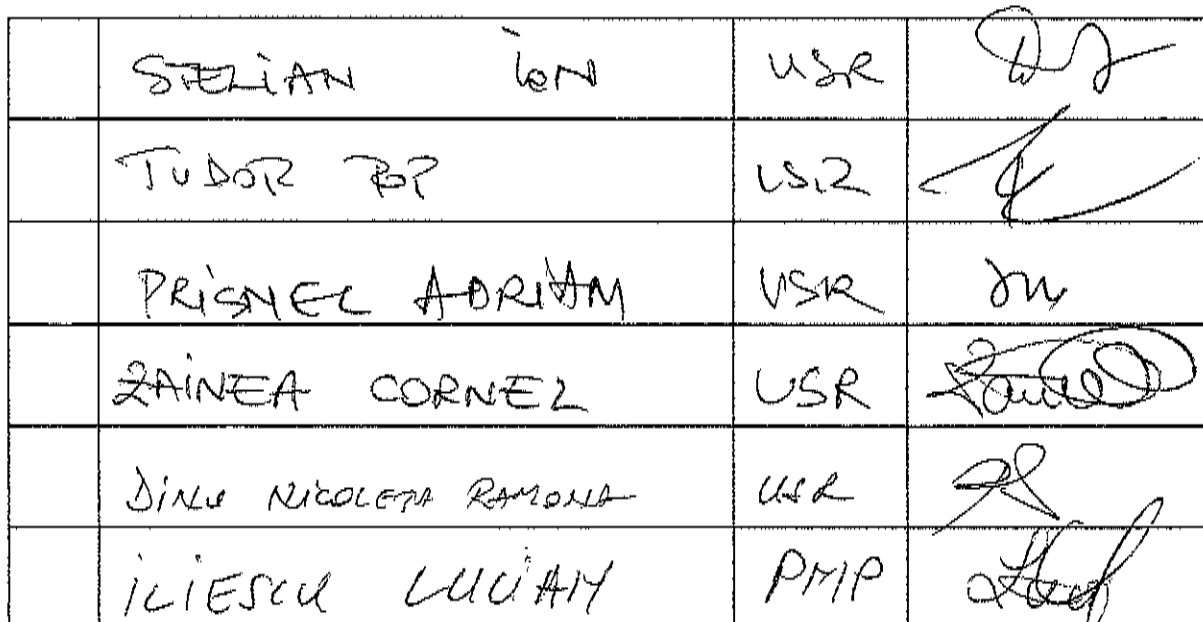 STELIAN ION USR
TUDOR POP USR
PRISNEL ADRIAN USR
ZAINEA CORNEL USR
DINU NICOLETA RAMONA USR
ILIESCU LUCIAN PMP